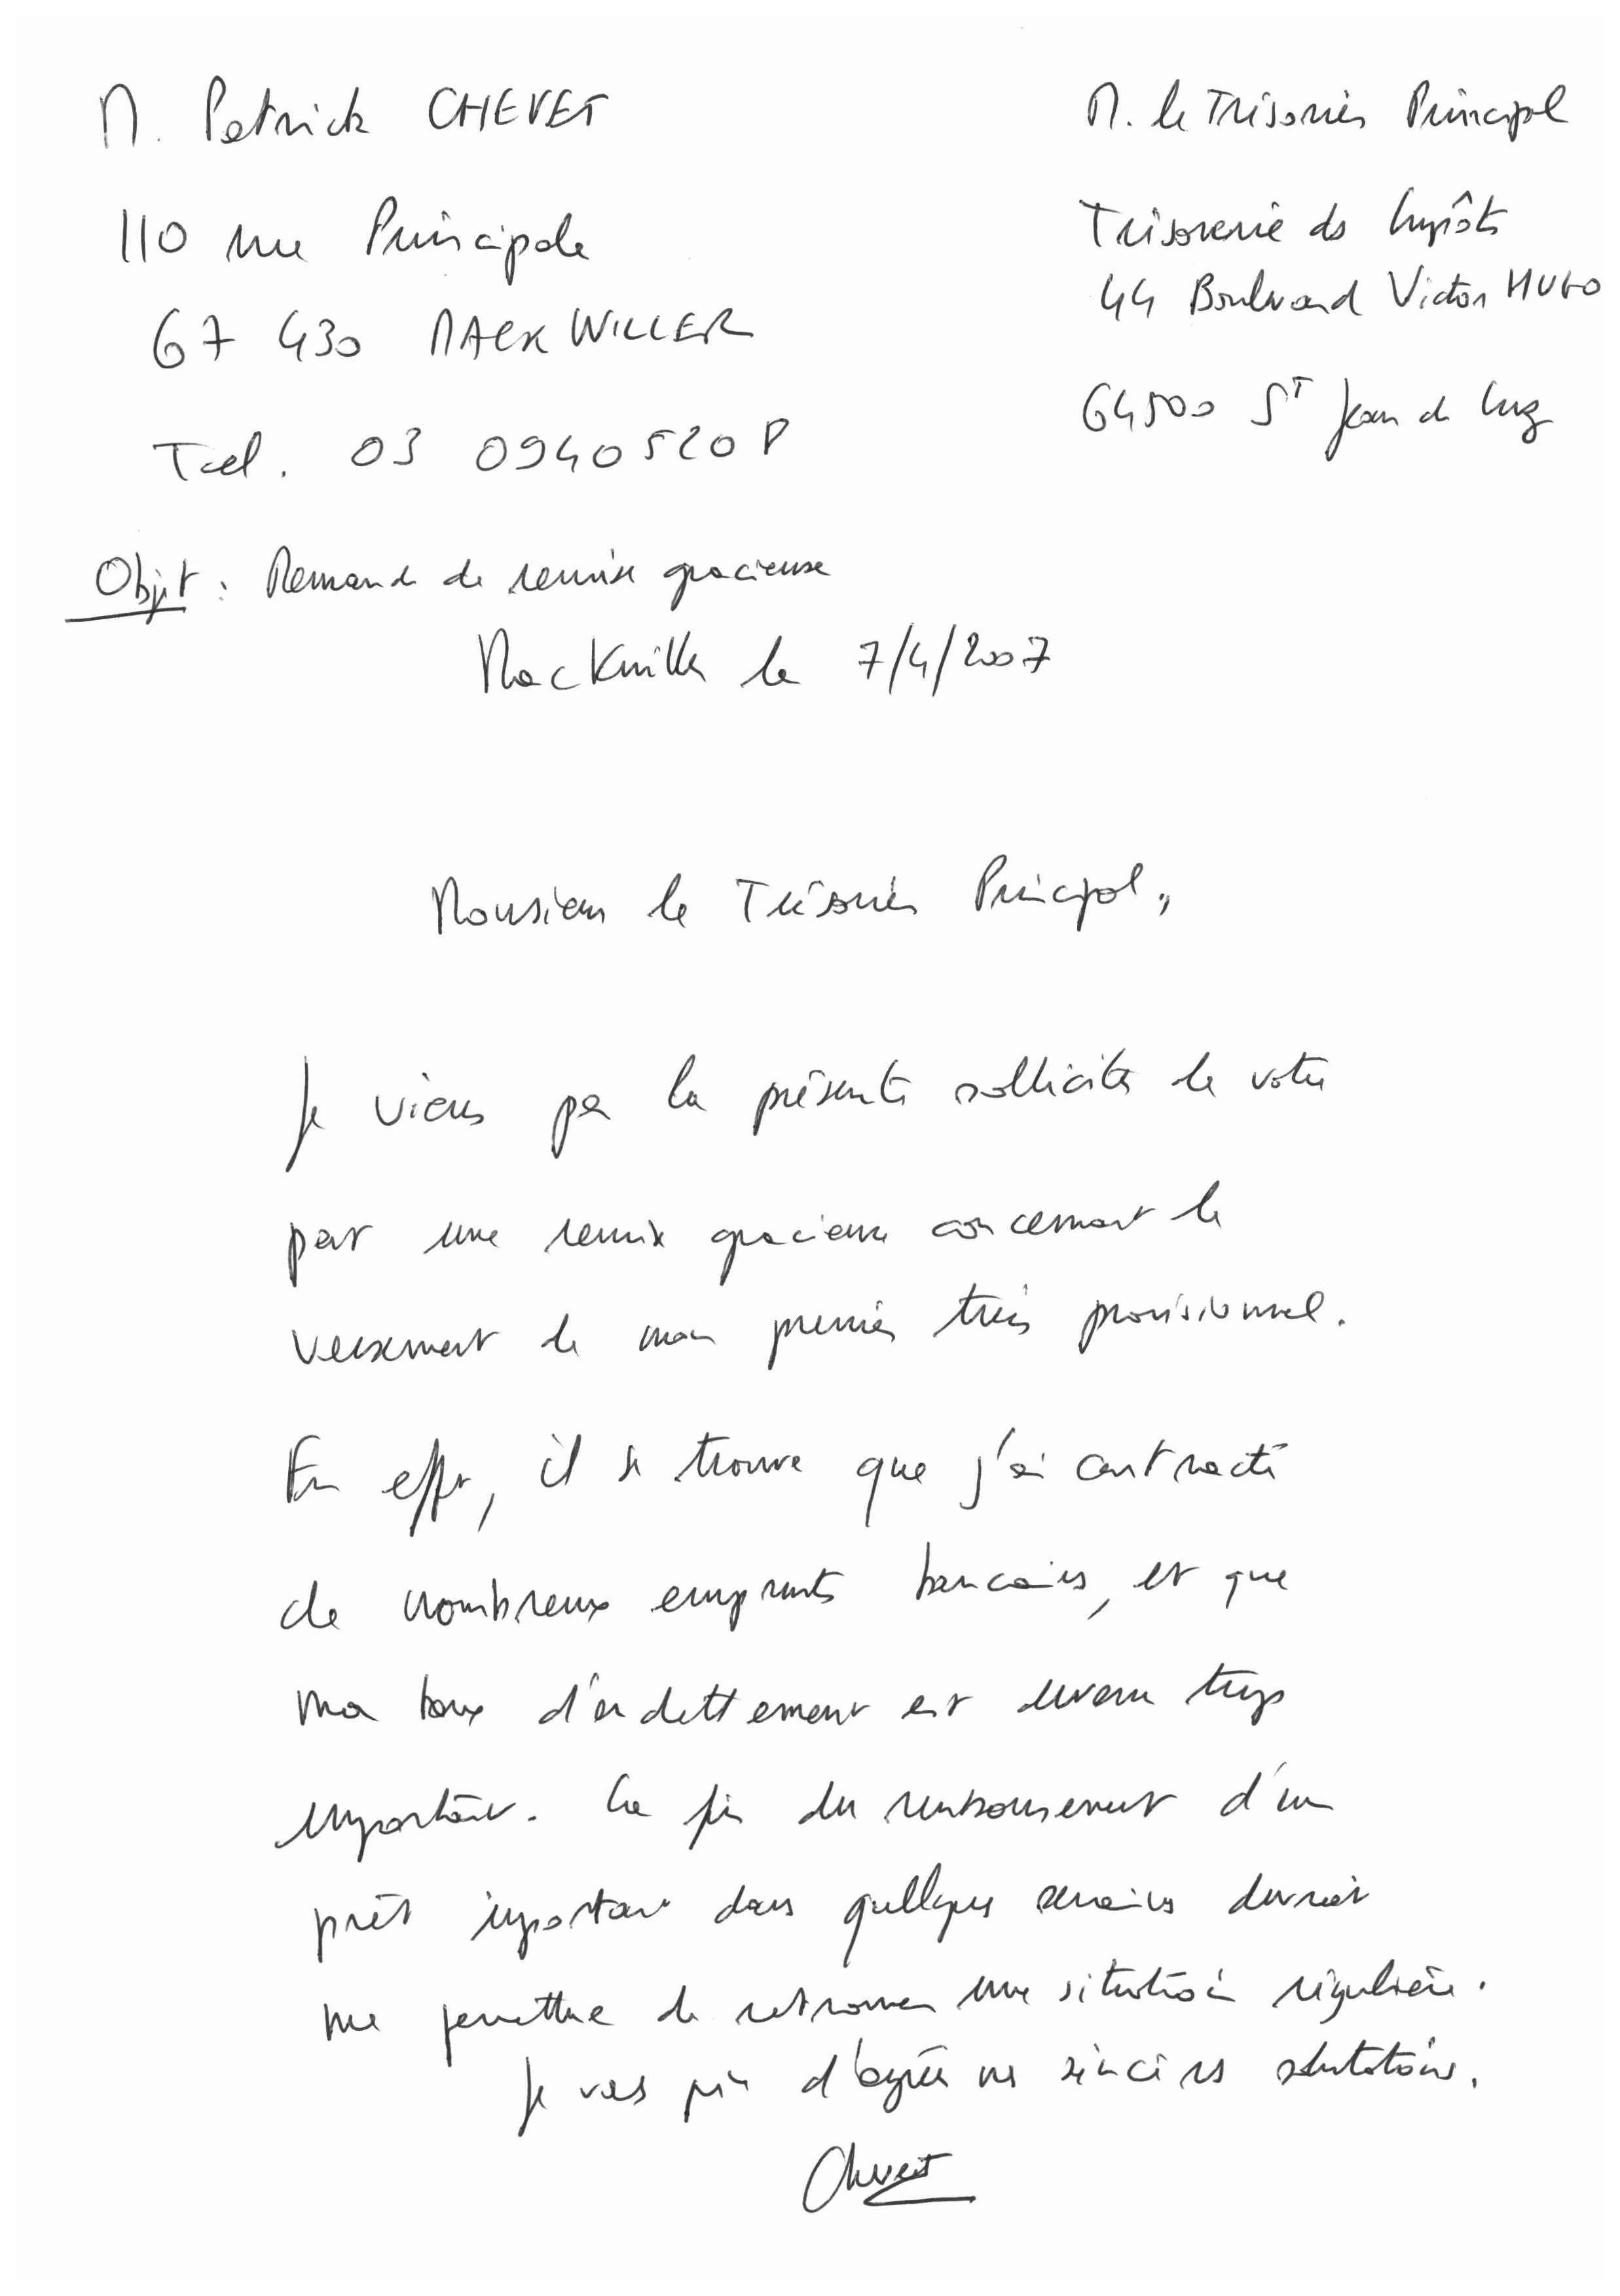 M. Patrick CHEVET
110 rue Principale
67 430 MACKWILLER
Tel. 03 09405208
M. le Trésorier Principal
Trésorerie des Impôts
44 Boulevard Victor HUGO
64500 ST Jean de Luz
Objet : Demande de remise gracieuse
Mackwiller le 7/4/2007
Monsieur le Trésorier Principal,
Je viens par la présente solliciter de votre
part une remise gracieuse concernant le
versement de mon premier tiers provisionnel.
En effet, il se trouve que j'ai contracté
de nombreux emprunts bancaires, et que
ma taux d'endettement est devenu trop
important. La fin du remboursement d'un
prêt important dans quelques semaines devrait
me permettre de retrouver une situation régulière.
Je vous prie d'agréer mes sincères salutations.
Chevet